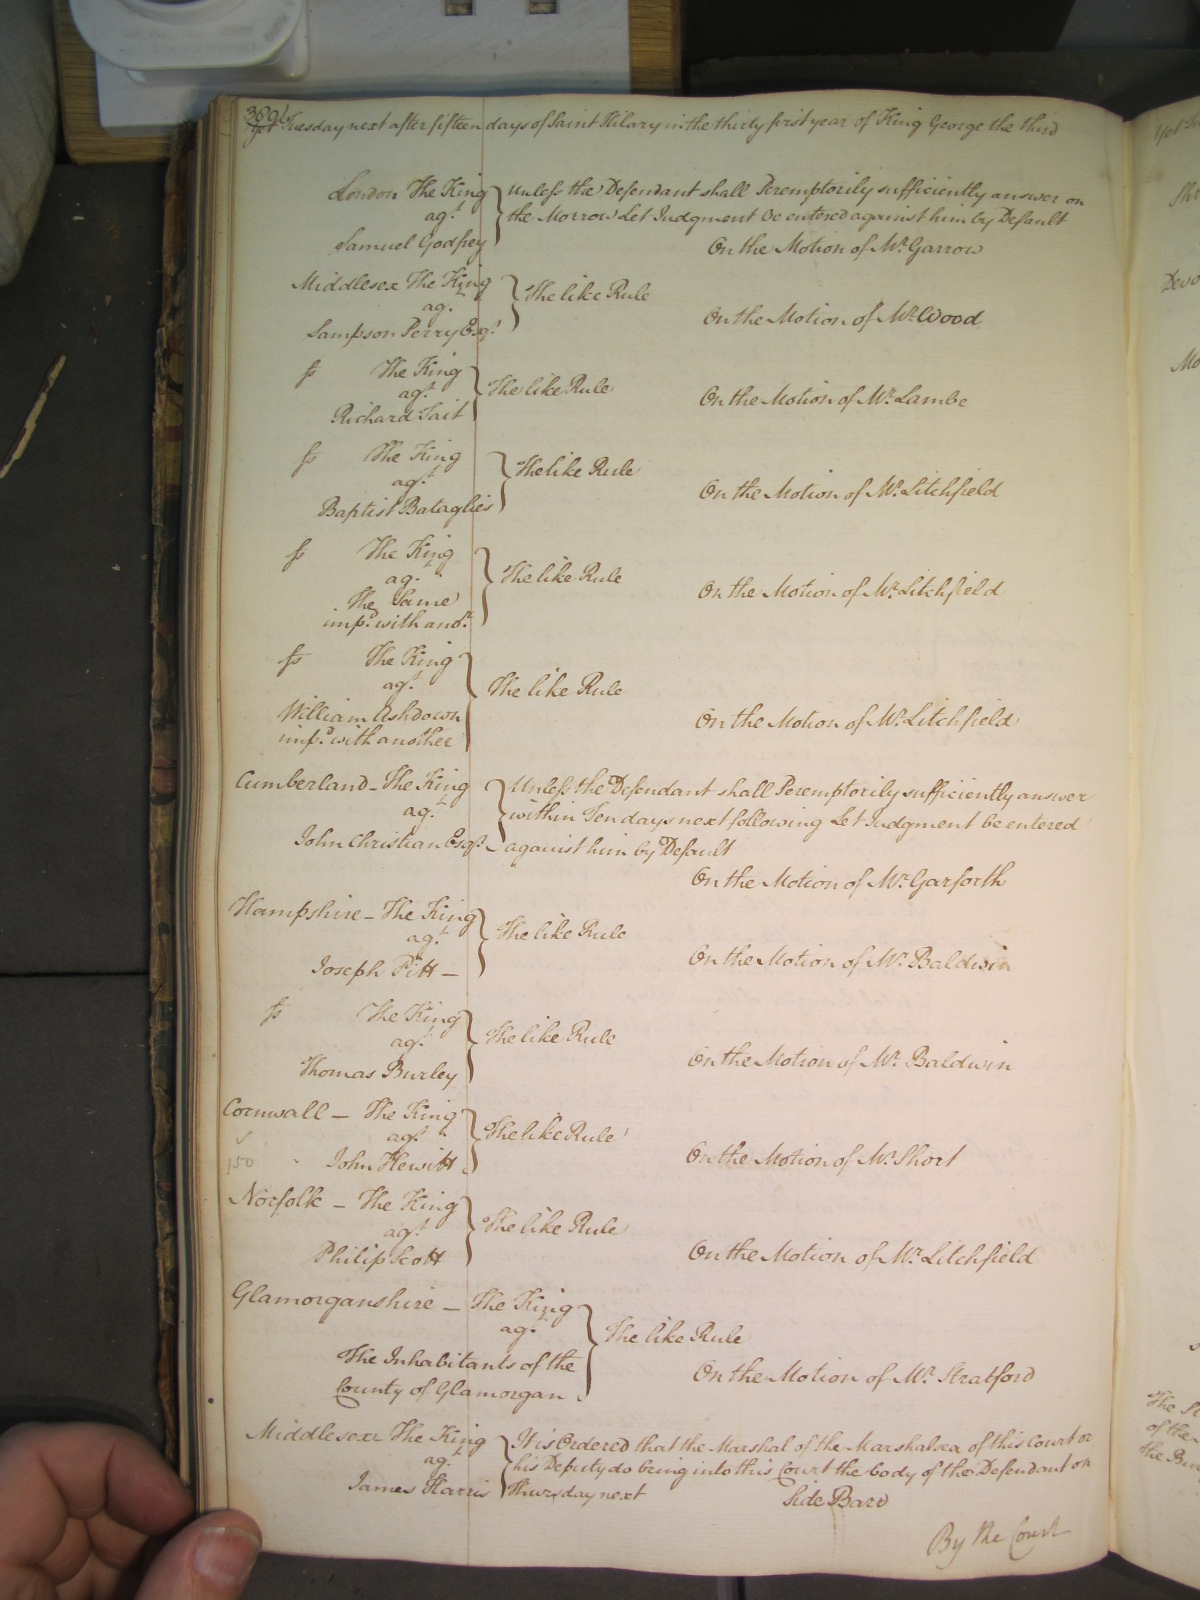 Tuesday next after fifteen days of Saint Hilary in the thirty first year of King George the third
London The King
agt.
Samuel Godfrey
Unless the Defendant shall Peremptorily sufficiently answer on
the Morrow Let Judgment be entered against him by Default
On the Motion of Mr. Garrow
Middlesex The King
agt.
Sampson Perry Esqr.
The like Rule
On the Motion of Mr. Wood
ss The King
agt.
Richard Tait
The like Rule
On the Motion of Mr. Lambe
ss The King
agt.
Baptist Bataglies
The like Rule
On the Motion of Mr. Litchfield
ss The King
agt.
The Same
impd. with anor.
The like Rule
On the Motion of Mr. Litchfield
ss The King
agt.
William Ashdown
impd. with another
The like Rule
On the Motion of Mr. Litchfield
Cumberland - The King
agt.
John Christian Esqr.
Unless the Defendant shall Peremptorily sufficiently answer
within Ten days next following Let Judgment be entered
against him by Default
On the Motion of Mr. Garforth
Hampshire - The King
agt.
Joseph Pitt -
The like Rule
On the Motion of Mr. Baldwin
ss The King
agt.
Thomas Burley
The like Rule
On the Motion of Mr. Baldwin
Cornwall - The King
agt.
150 John Hewitt
The like Rule
On the Motion of Mr. Short
Norfolk - The King
agt.
Philip Scott
The like Rule
On the Motion of Mr. Litchfield
Glamorganshire - The King
agt.
The Inhabitants of the
County of Glamorgan
The like Rule
On the Motion of Mr. Stratford
Middlesex The King
agt.
James Harris
It is Ordered that the Marshal of the Marshalsea of this Court or
his Deputy do bring into this Court the body of the Defendant on
Thursday next
Side Barr
By the Court